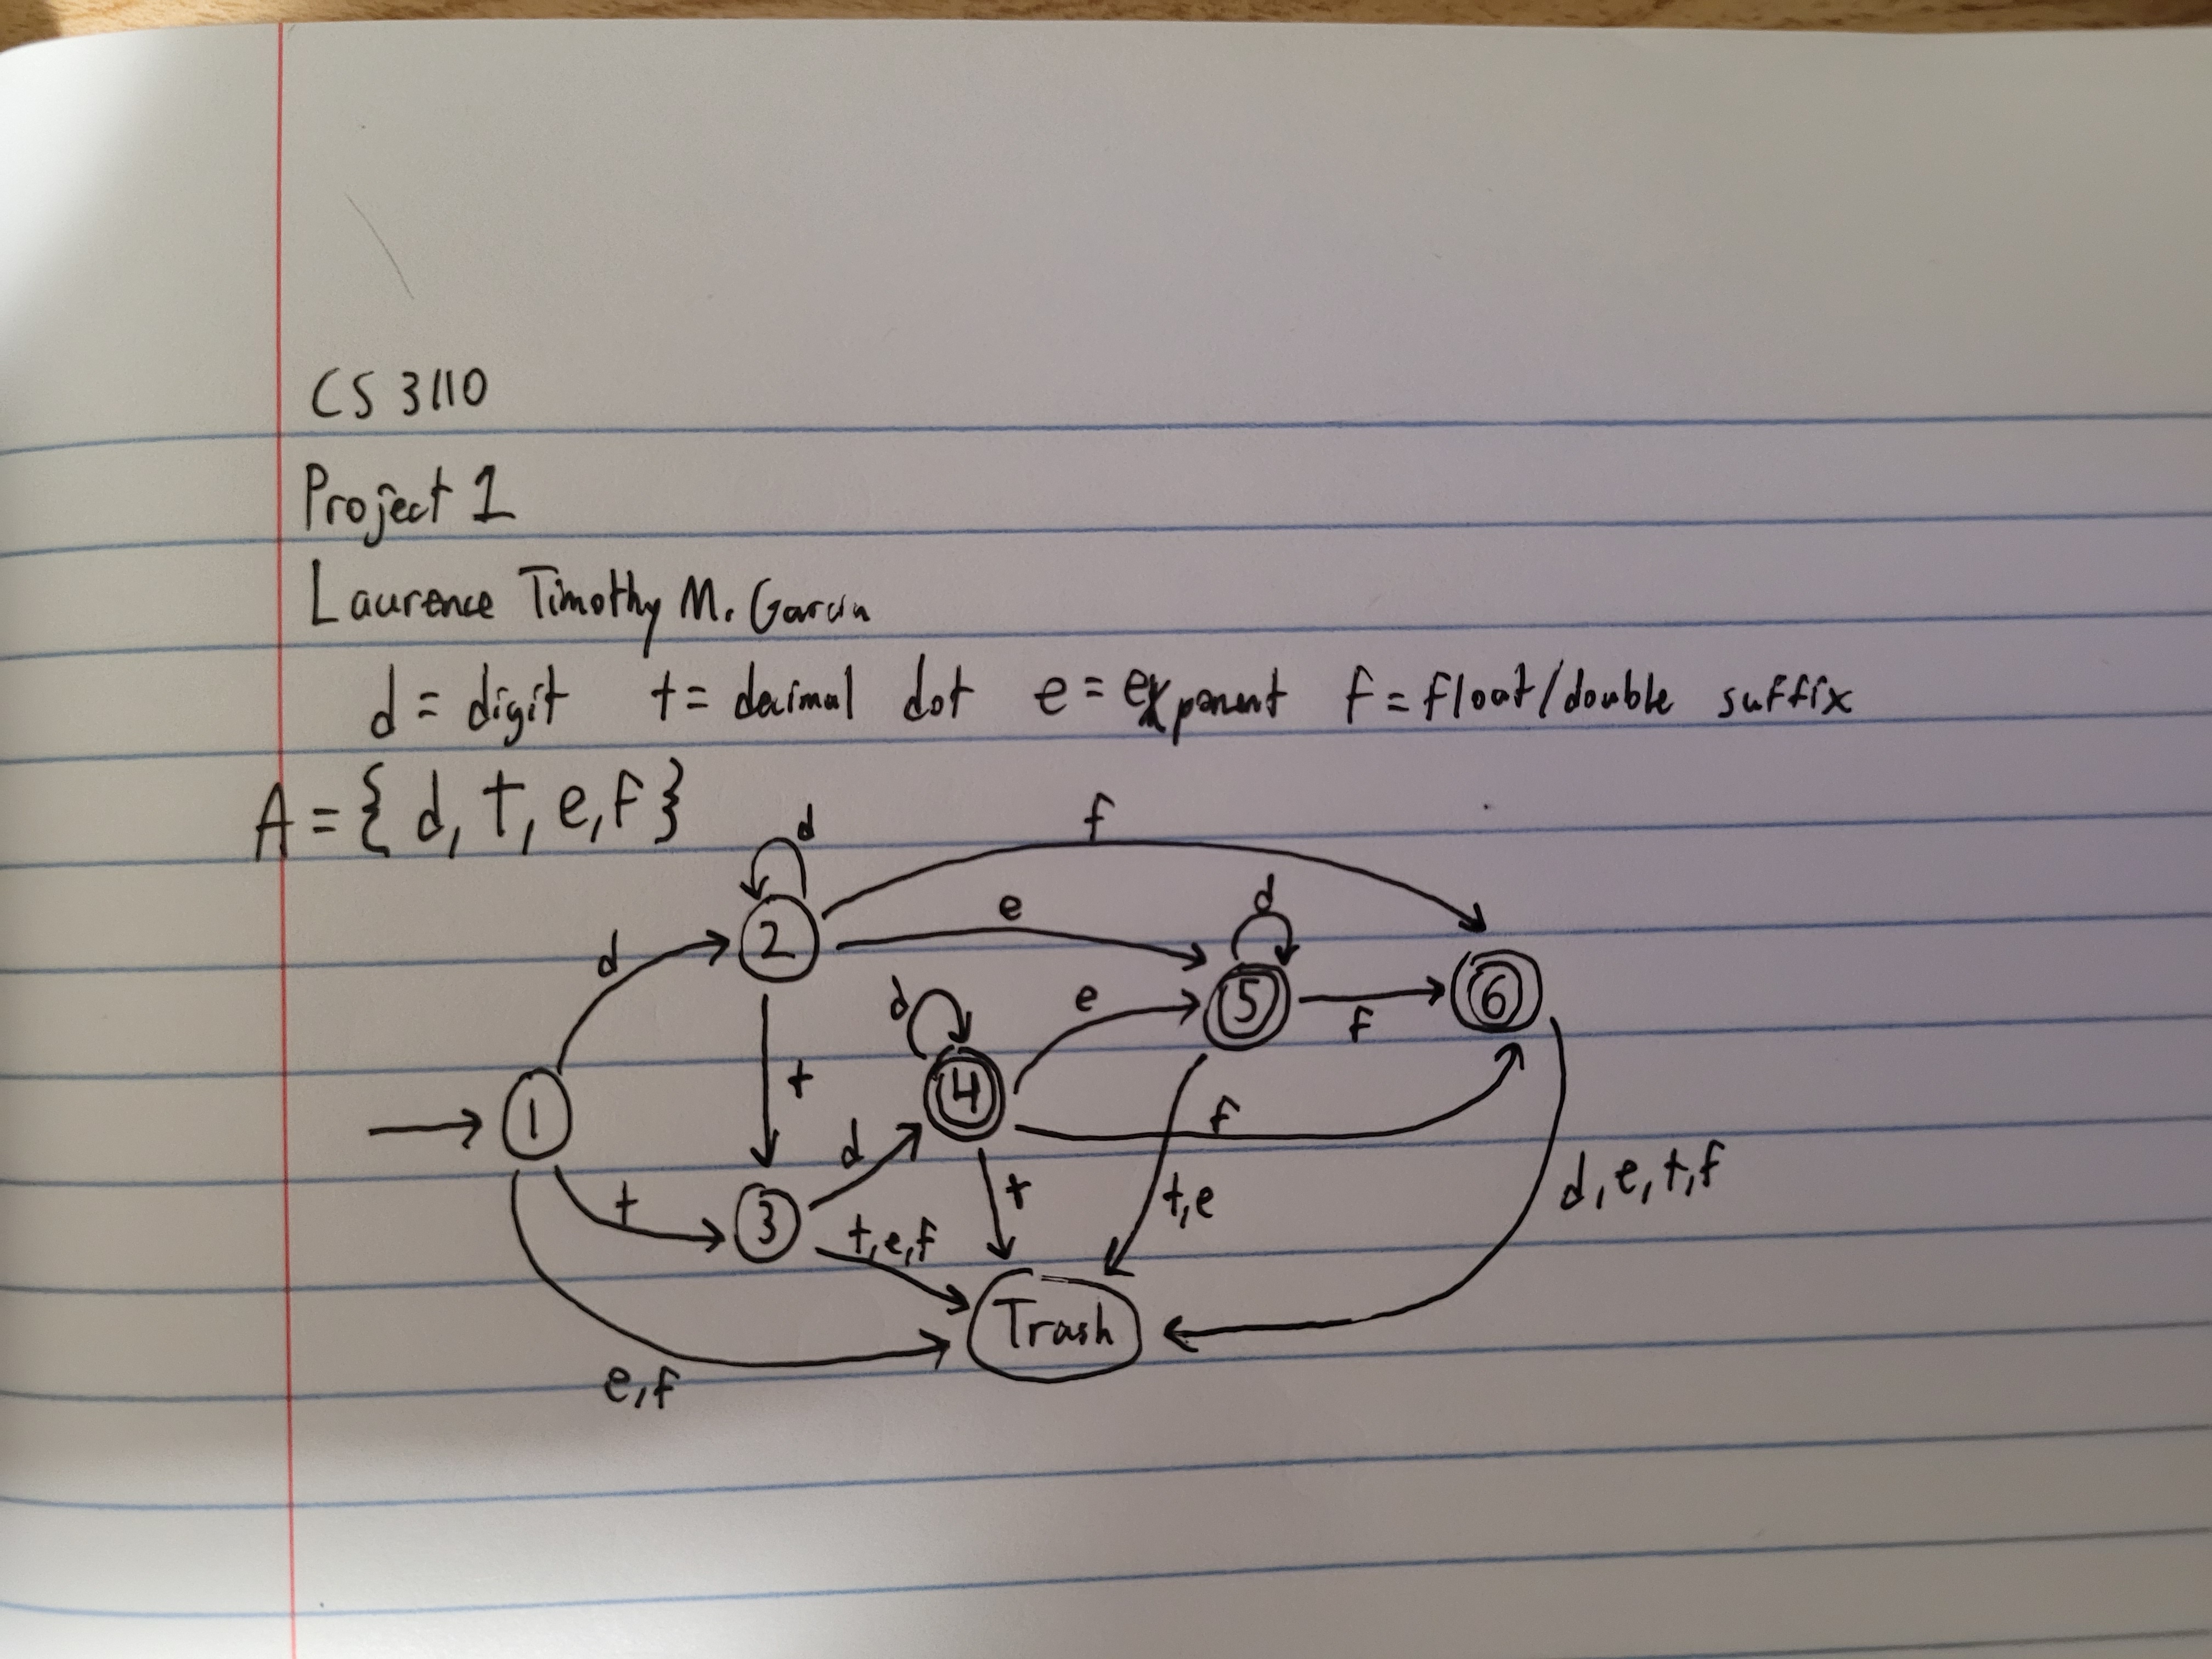 CS 3110
Project 1
Laurence Timothy M. Garcia
d = digit t = decimal dot e = exponent f = float/double suffix
A = { d, t, e, f }
d
f
d
e
d
2
d
e
5
f
6
t
4
f
1
d
t
t,e
d,e,t,f
t
3
t,e,f
Trash
e,f